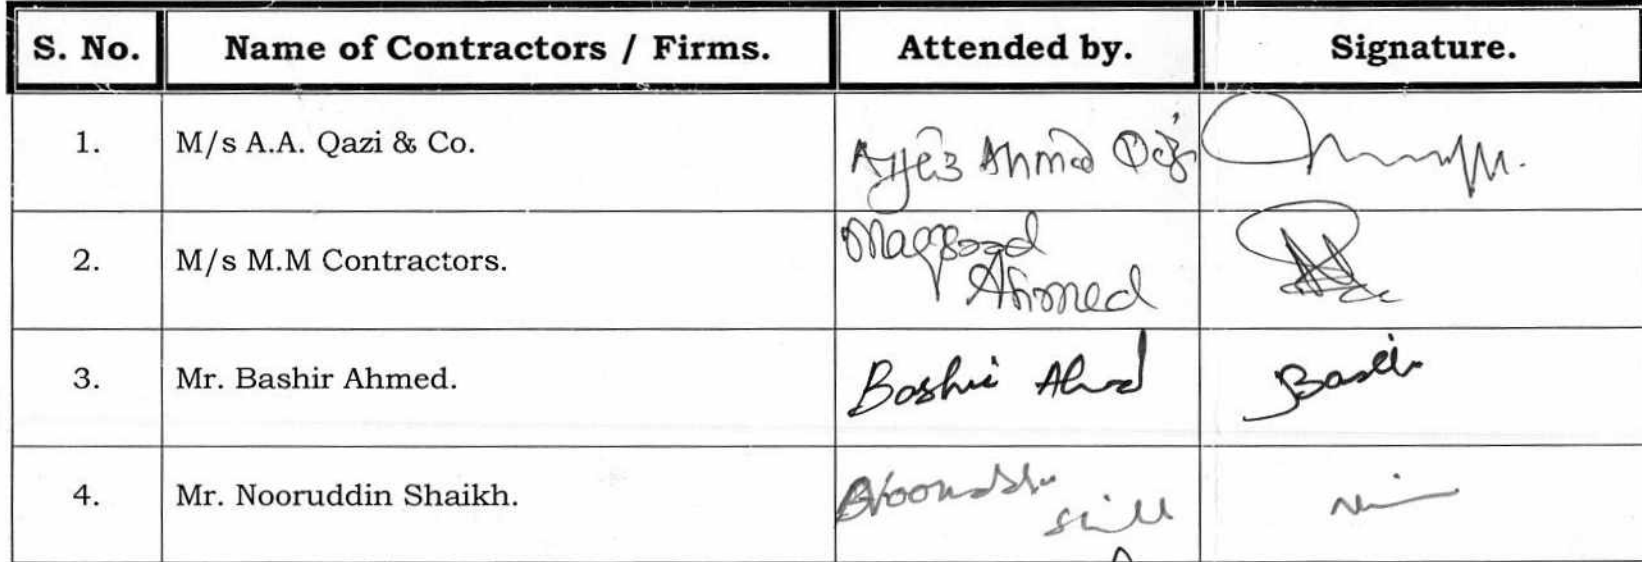 S. No. Name of Contractors / Firms. Attended by. Signature.
1. M/s A.A. Qazi & Co. Ahmed
2. M/s M.M Contractors. Maqsood
Ahmed
3. Mr. Bashir Ahmed. Bashir Ahmed Bashir
4. Mr. Nooruddin Shaikh. Nooruddin